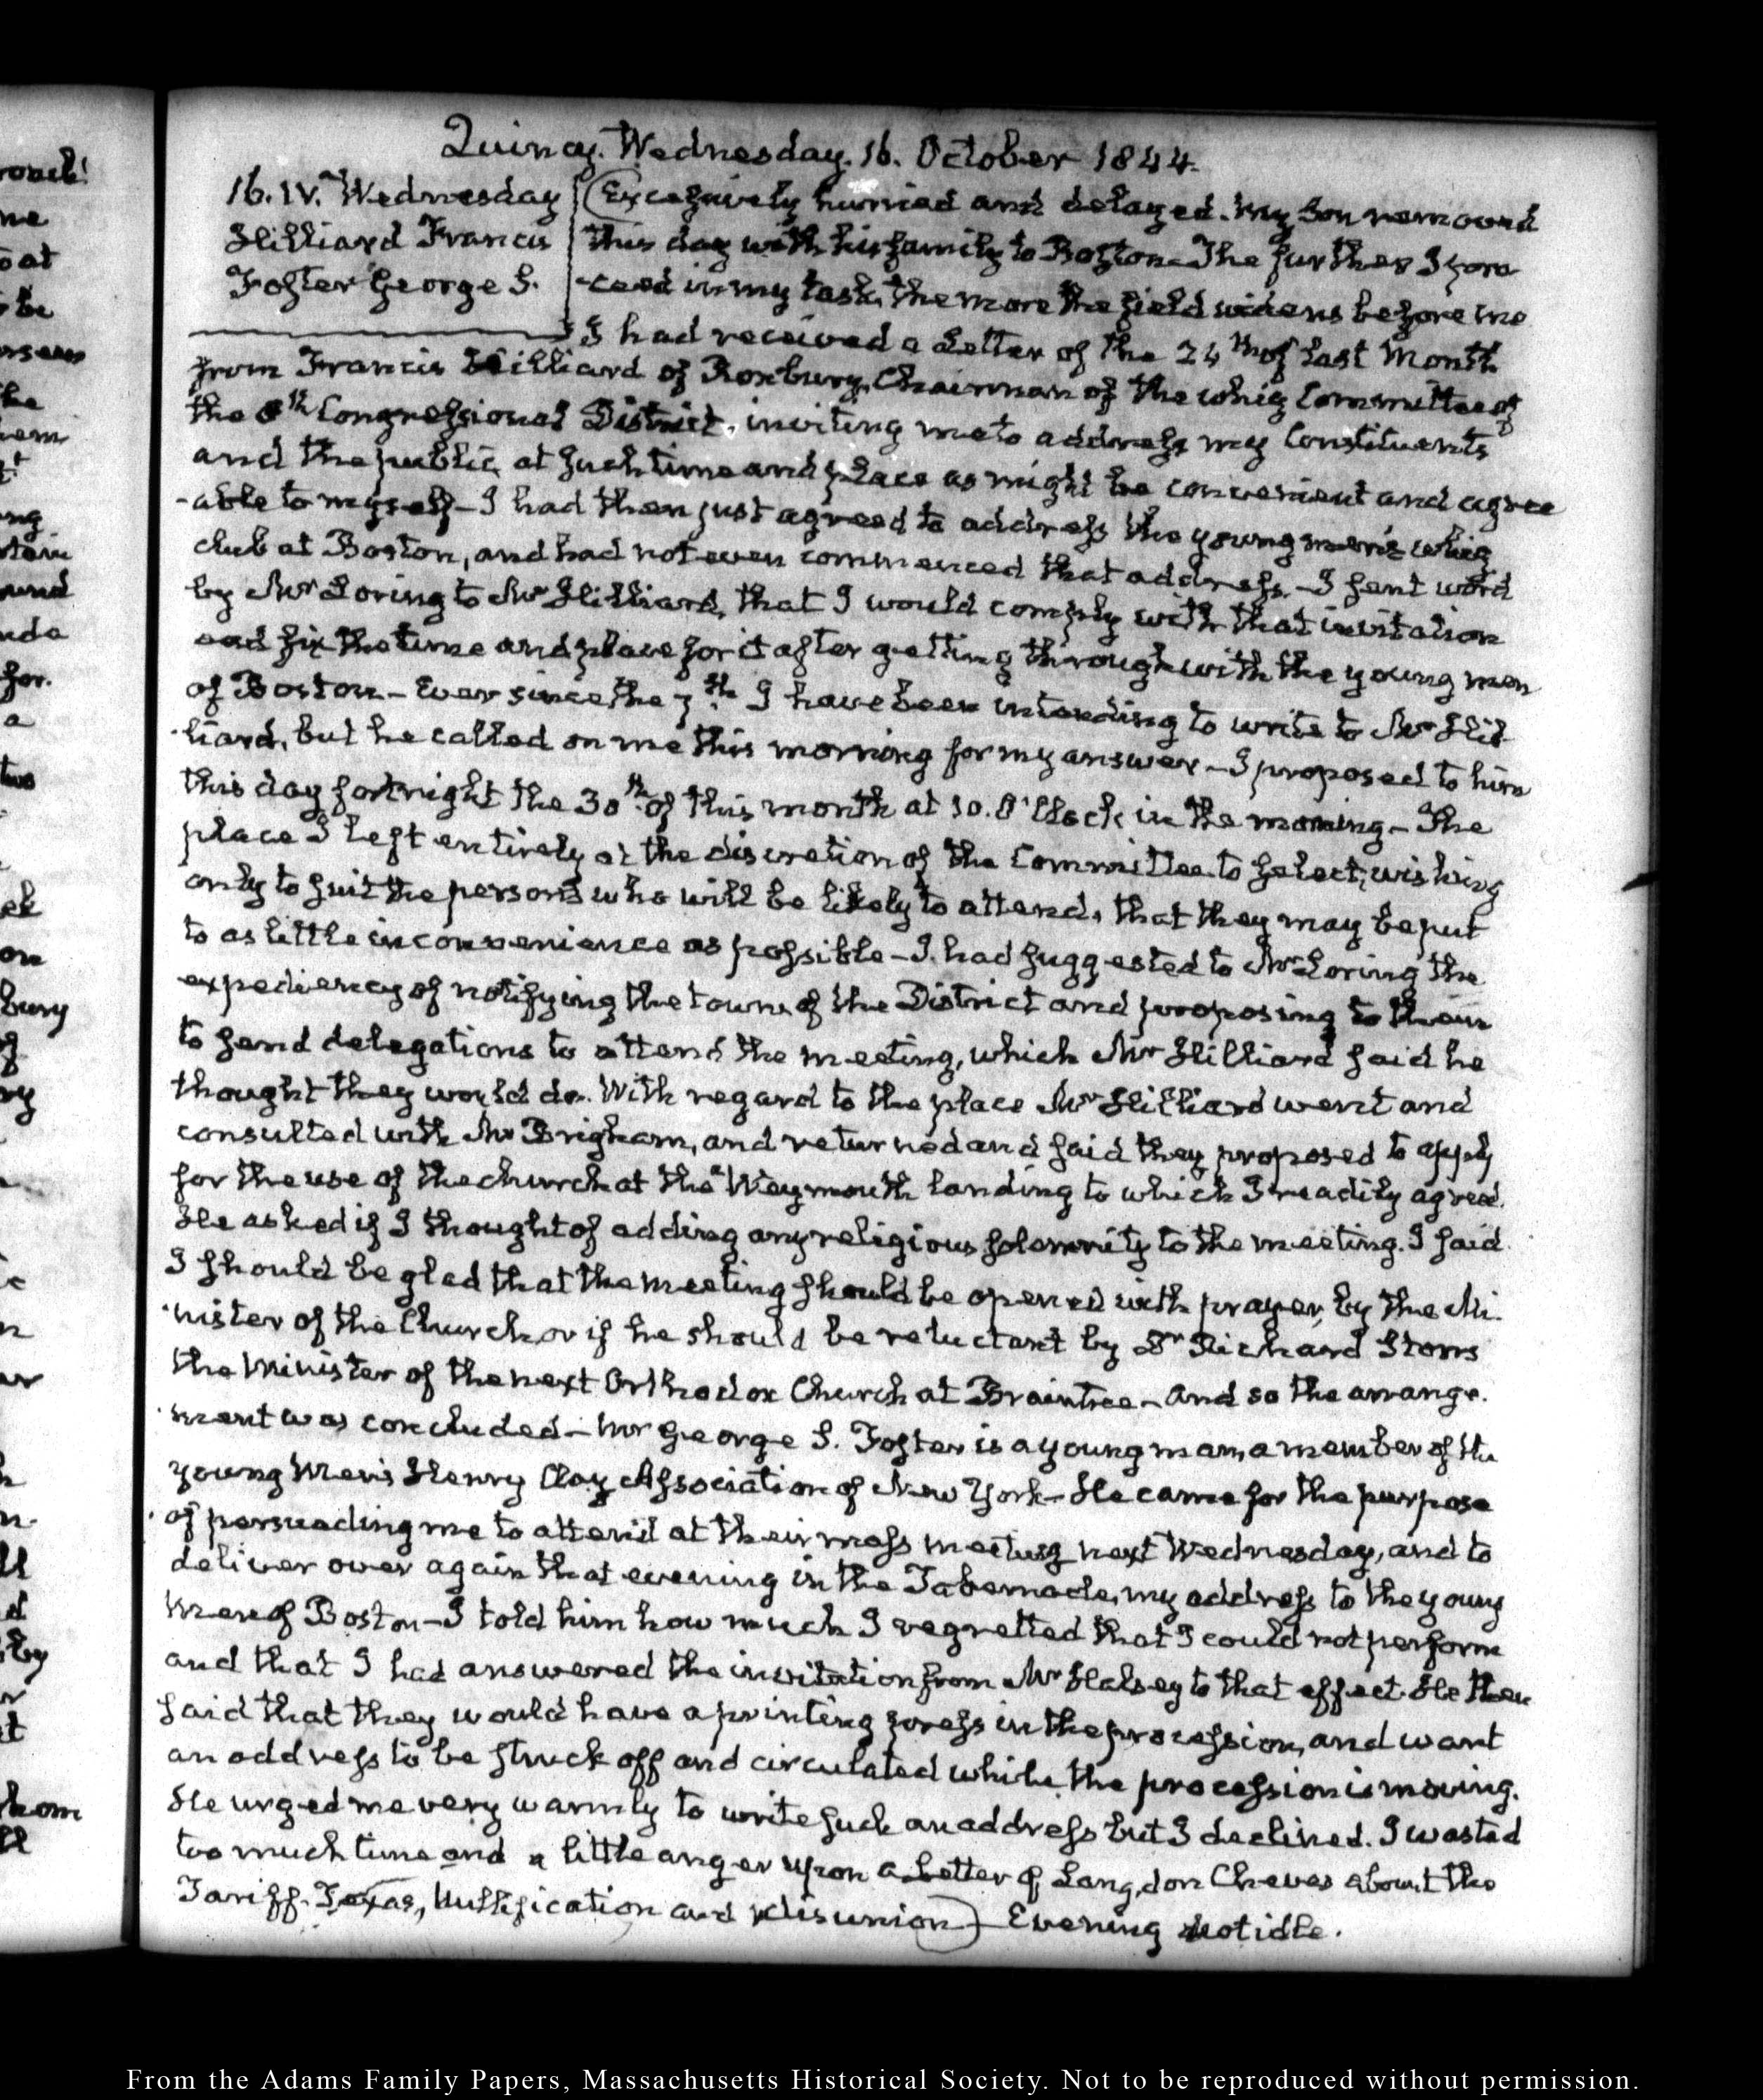 Quincy. Wednesday. 16. October 1844.
16. IV. Wednesday
Hilliard Francis
Foster George S.
Excessively hurried and delayed. My Son removed
this day with his family to Boston. The further I pro
-ceed in my task, the more the field widens before me
I had received a Letter of the 24th. of last Month
from Francis Hilliard of Roxbury, Chairman of the whig Committee of
the 8th Congressional District, inviting me to address my Constituents
and the public, at such time and place as might be convenient and agree
-able to myself – I had then just agreed to address the young men's whig
club at Boston, and had not even commenced that address. – I sent word
by Mr Loring to Mr Hilliard, that I would comply with that invitation
and fix the time and place for it after getting through with the young men
of Boston – Ever since the 7th. I have been intending to write to Mr Hil-
-liard, but he called on me this morning for my answer – I proposed to him
this day fortnight the 30th. of this month at 10. O'Clock in the morning – The
place I left entirely at the discretion of the Committee to select, wishing
only to suit the persons who will be likely to attend, that they may be put
to as little inconvenience as possible – I had suggested to Mr Loring the
expediency of notifying the towns of the District and proposing to them
to send delegations to attend the meeting, which Mr Hilliard said he
thought they would do. With regard to the place Mr Hilliard went and
consulted with Mr Brigham, and returned and said they proposed to apply
for the use of the church at the Weymouth landing to which I readily agreed.
He asked if I thought of adding any religious solemnity to the meeting. I said
I should be glad that the meeting should be opened with prayer, by the Mi-
-nister of the Church or if he should be reluctant by Dr Richard Storrs
the Minister of the next Orthodox Church at Braintree – and so the arrange-
-ment was concluded – Mr George S. Foster is a young man, a member of the
young Men's Henry Clay Association of New York – He came for the purpose
of persuading me to attend at their mass meeting next Wednesday, and to
deliver over again that evening in the Tabernacle, my address to the young
Men of Boston – I told him how much I regretted that I could not perform
and that I had answered the invitation from Mr Halsey to that effect. He then
said that they would have a printing press in the procession, and want
an address to be struck off and circulated while the procession is moving.
He urged me very warmly to write such an address but I declined. I wasted
too much time and a little anger upon a Letter of Langdon Cheves about the
Tariff. Texas, Nullification and disunion) – Evening not idle.
roach!
me
o at
be
the
hem
ng
und
for.
a
two
ek
on
bury
of
ry
n
ll
d
by
r
t
hom
ll
From the Adams Family Papers, Massachusetts Historical Society. Not to be reproduced without permission.